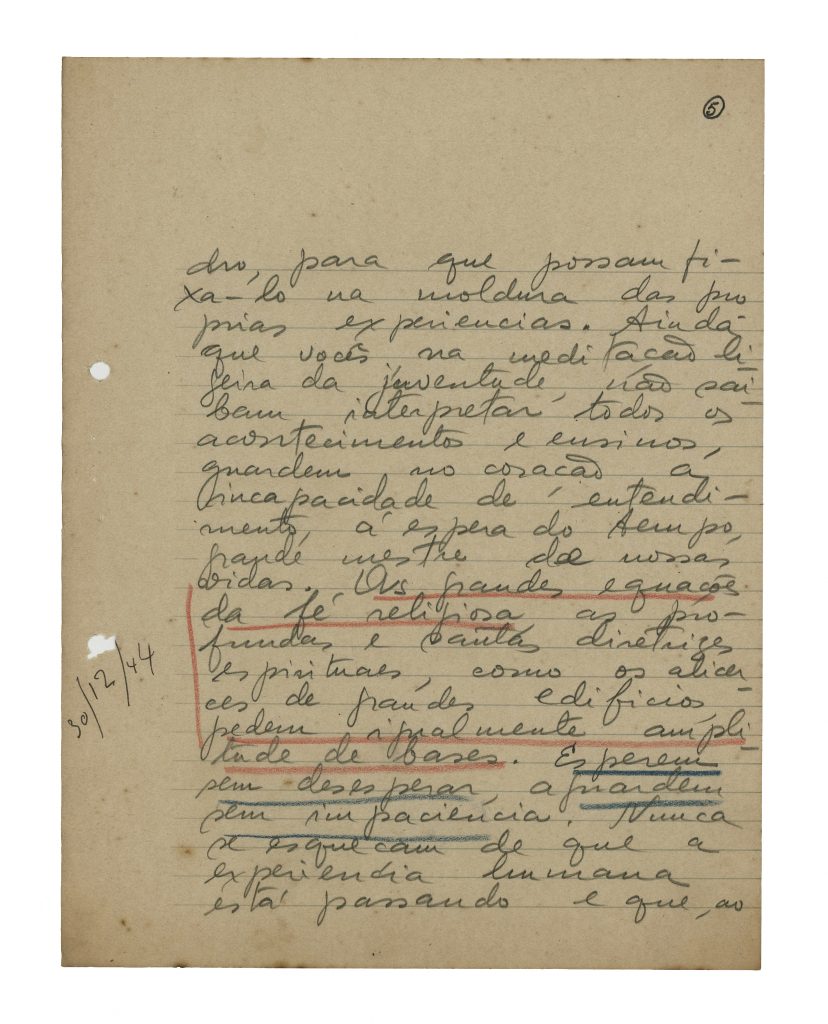 5
dro, para que possam fi-
xa-lo na moldura das pro
prias experiencias. Ainda
que vocês, na meditação li-
geira da juventude, não sai-
bam interpretar todos os
acontecimentos e ensinos,
guardem no coração a
incapacidade de entendi-
mento, á espera do tempo,
grande mestre de nossas
vidas. As grandes equações
da fé religiosa, as pro-
fundas e santas diretrizes
espirituaes, como os alicer-
ces de grandes edificios,
pedem igualmente ampli-
tude de bases. Esperem
sem desesperar, aguardem
sem impaciencia. Nunca
se esqueçam de que a
experiencia humana
está passando e que, ao
30/12/44